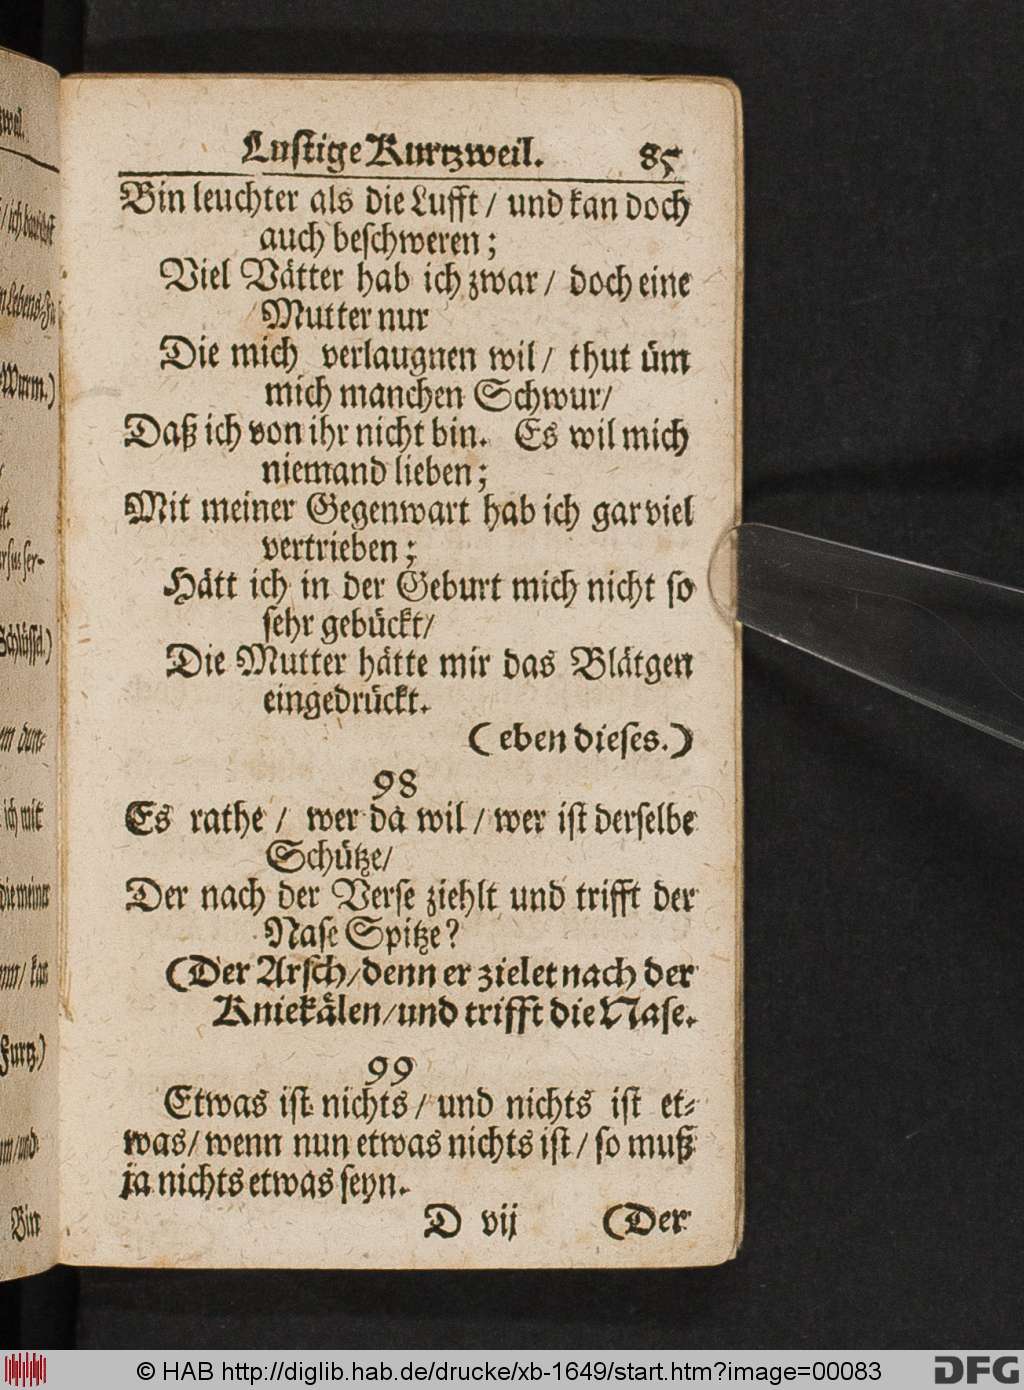 Lustige Kurtzweil. 85
Bin leuchter als die Lufft / und kan doch
auch beschweren;
Viel Vätter hab ich zwar / doch eine
Mutter nur
Die mich verlaugnen wil / thut üm
mich manchen Schwur/
Daß ich von ihr nicht bin. Es wil mich
niemand lieben;
Mit meiner Gegenwart hab ich gar viel
vertrieben;
Hätt ich in der Geburt mich nicht so
sehr gebückt/
Die Mutter hätte mir das Blätgen
eingedrückt.
(eben dieses.)
98
Es rathe / wer da wil / wer ist derselbe
Schütze/
Der nach der Verse ziehlt und trifft der
Nase Spitze?
(Der Arsch/denn er zielet nach der
Kniekälen/und trifft die Nase.
99
Etwas ist nichts / und nichts ist et-
was/ wenn nun etwas nichts ist / so muß
ja nichts etwas seyn.
D vij (Der
© HAB http://diglib.hab.de/drucke/xb-1649/start.htm?image=00083
DFG